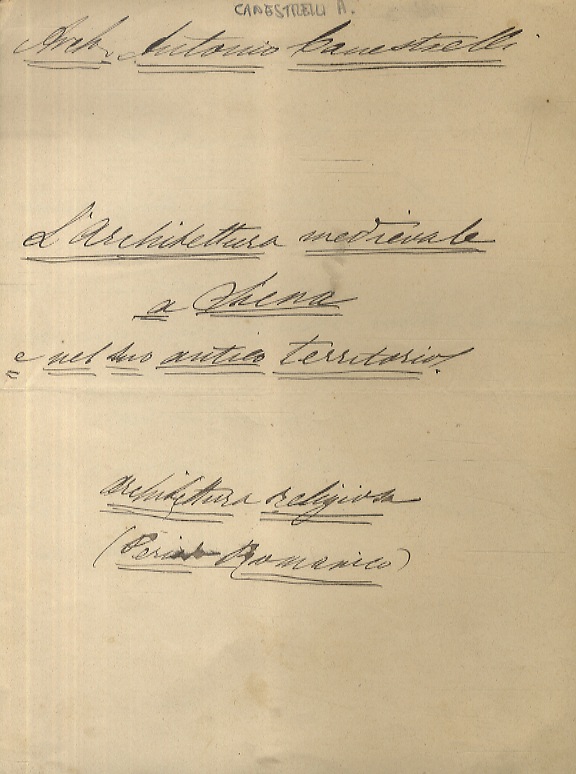 CANESTRELLI A.
Arch. Antonio Canestrelli
L'Architettura medievale
a Siena
e nel suo antico territorio
Architettura religiosa
(Periodo Romanico)